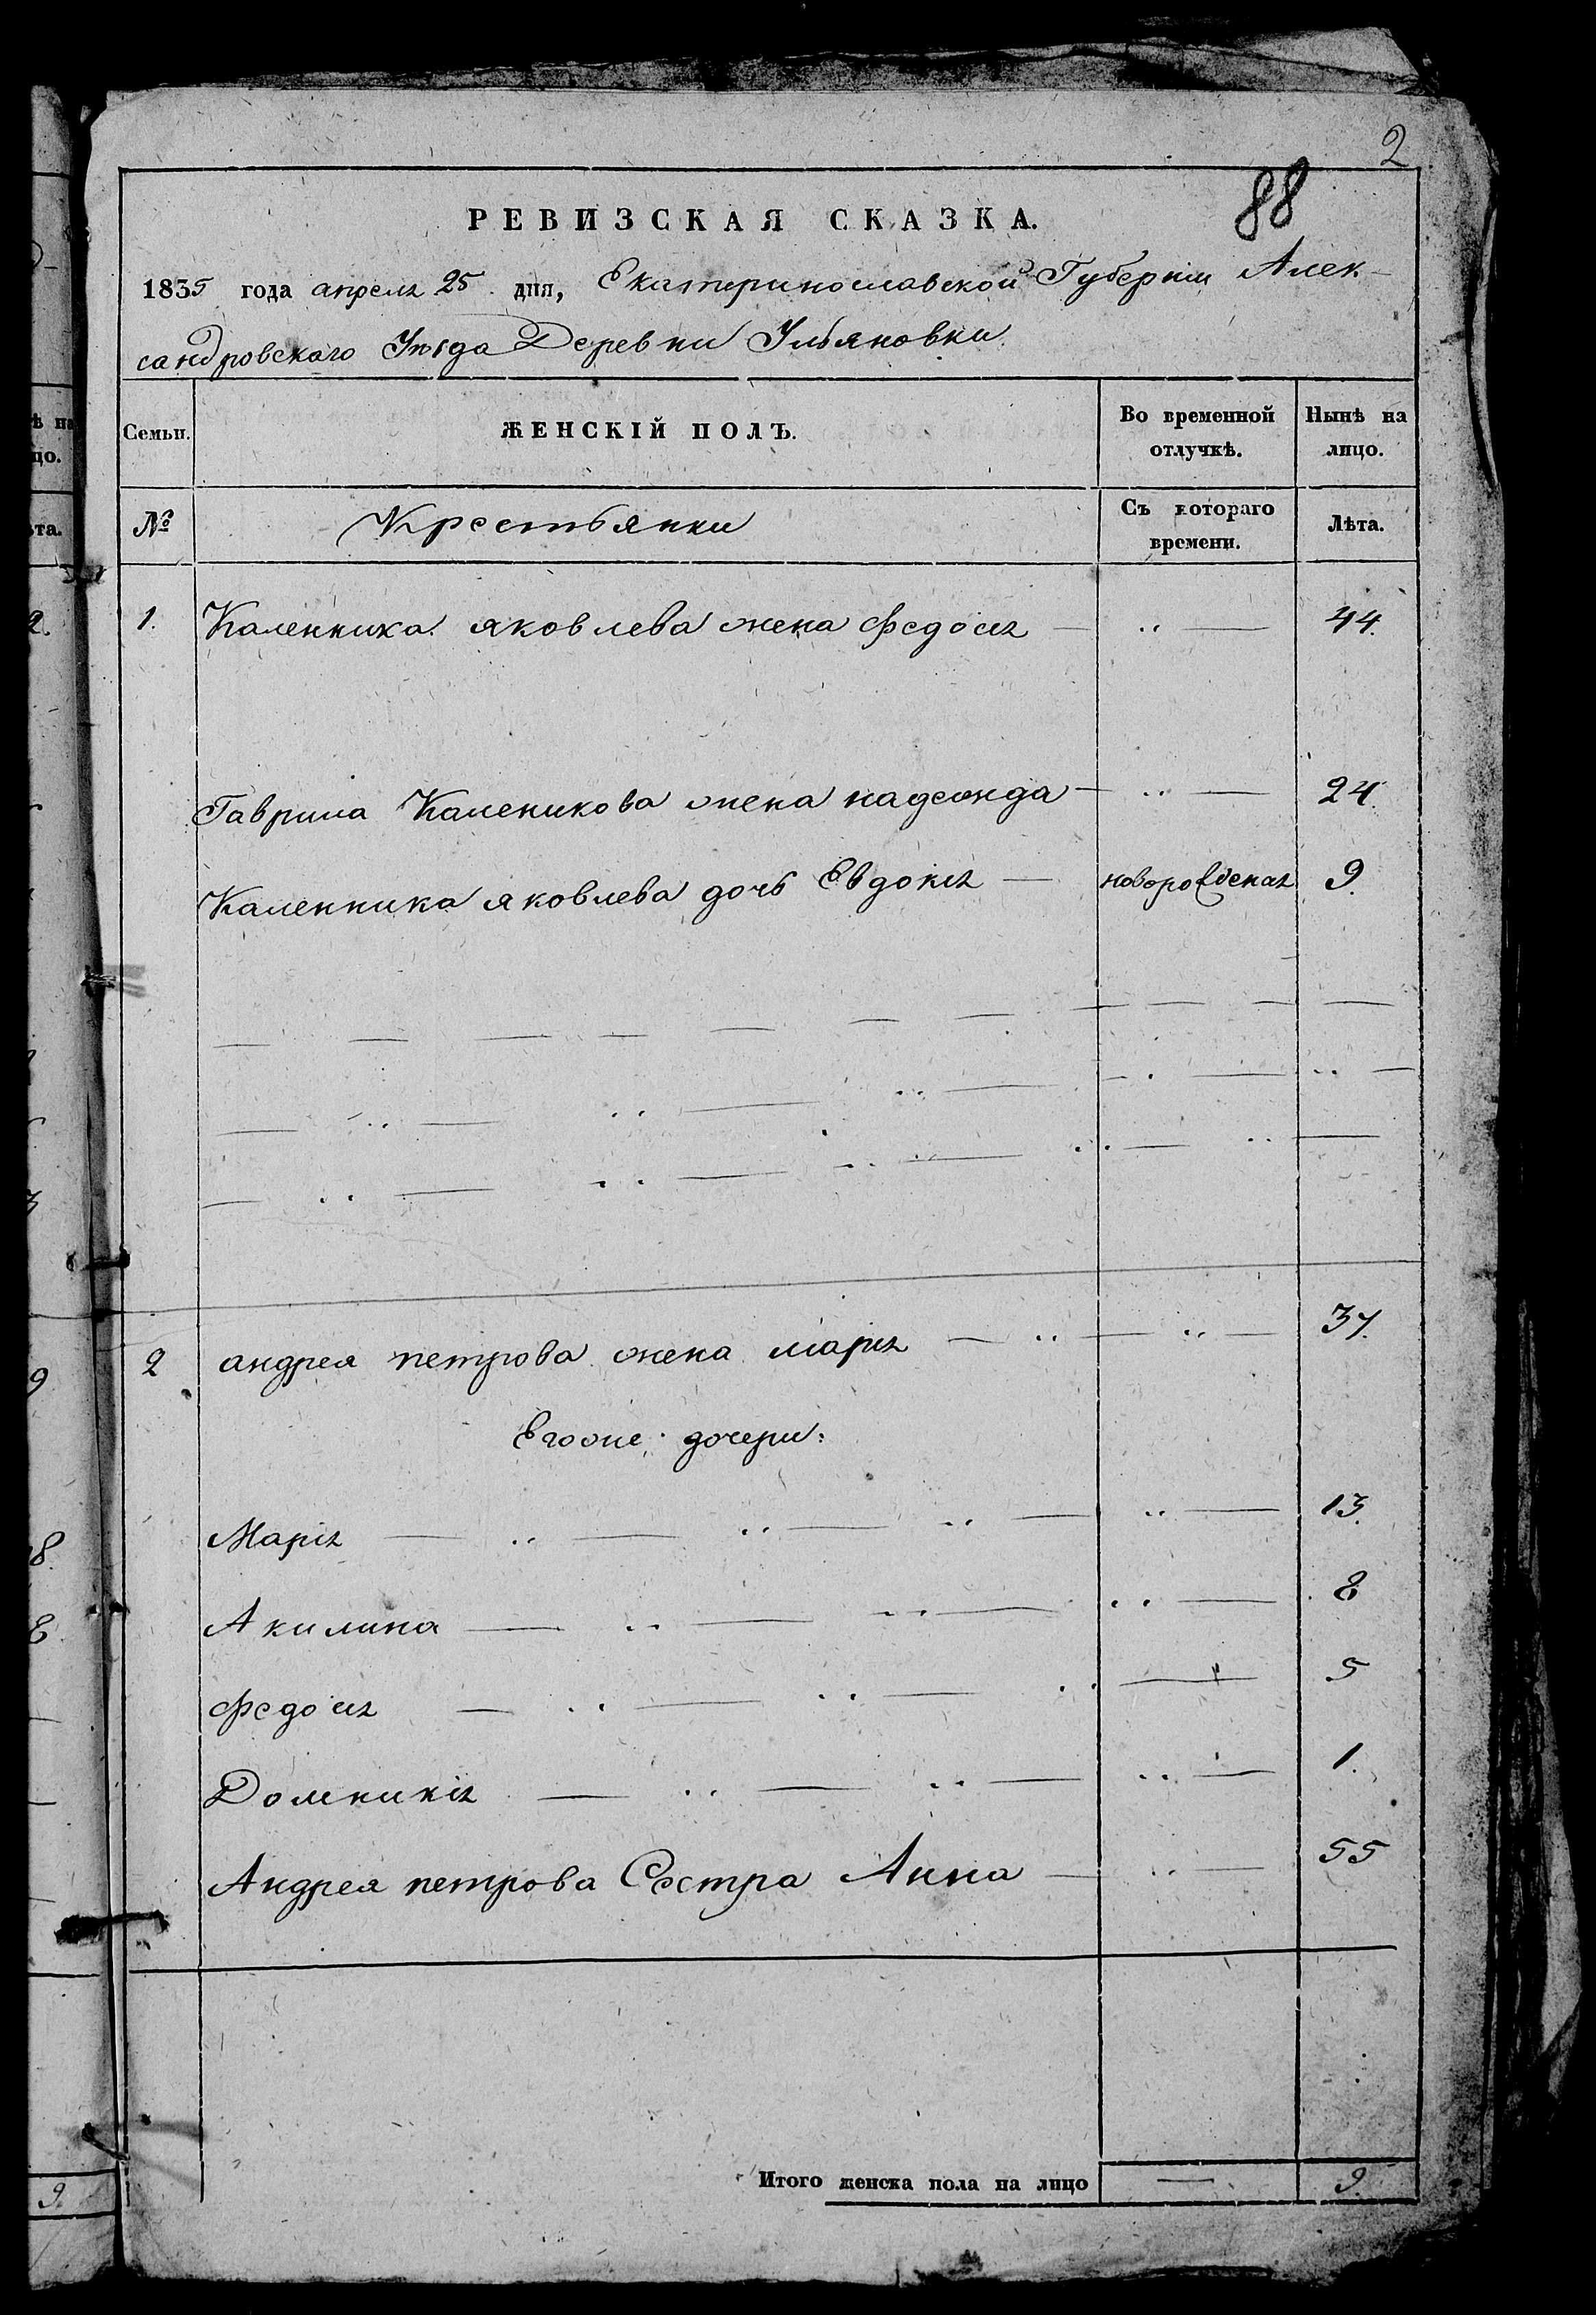 2
88
РЕВИЗСКАЯ СКАЗКА.
1835 года апреля 25 дня, Екатеринославской Губерніи Алек-
сандровскаго Уѣзда Деревни Ульяновки
Семьи. ЖЕНСКІЙ ПОЛЪ. Во временной отлучкѣ. Нынѣ на лицо.
№ Крестьянки Съ котораго времени. Лѣта.
1. Каленника яковлева жена Федосія 44.
Гаврила Каленикова жена надежда 24.
Каленника яковлева дочь Евдокія новорожденая 9.
2 андрея петрова жена марія 37.
Егоже дочери:
Марія 13.
Акилина 8
Федосія 5
Домникія 1.
Андрея петрова Сестра Анна 55
Итого женска пола на лицо — 9.